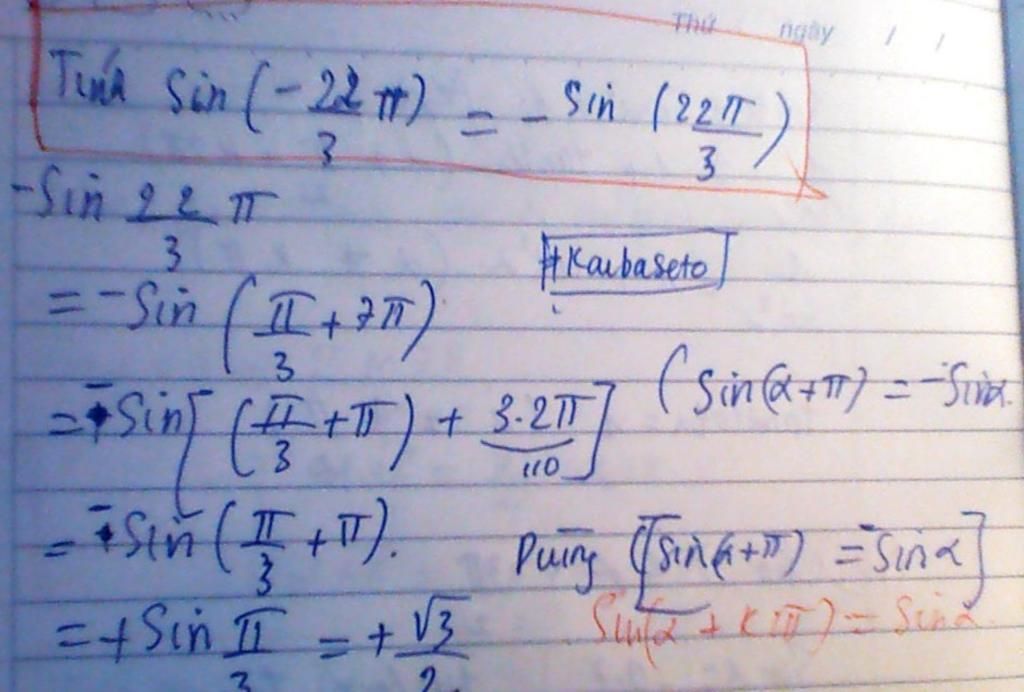 Thứ ngày / /
Tính Sin (-22π/3) = - Sin (22π/3)
-Sin 22π/3
#Kaibaseto
= -Sin (π/3 + 7π)
= -Sin [(π/3 + π) + 3.2π] (Sin(α+π) = -Sinα
= -Sin (π/3 + π). Dùng [Sin(α+π) = -Sinα]
= + Sin π/3 = + √3/2 Sin(α + kπ) = Sinα